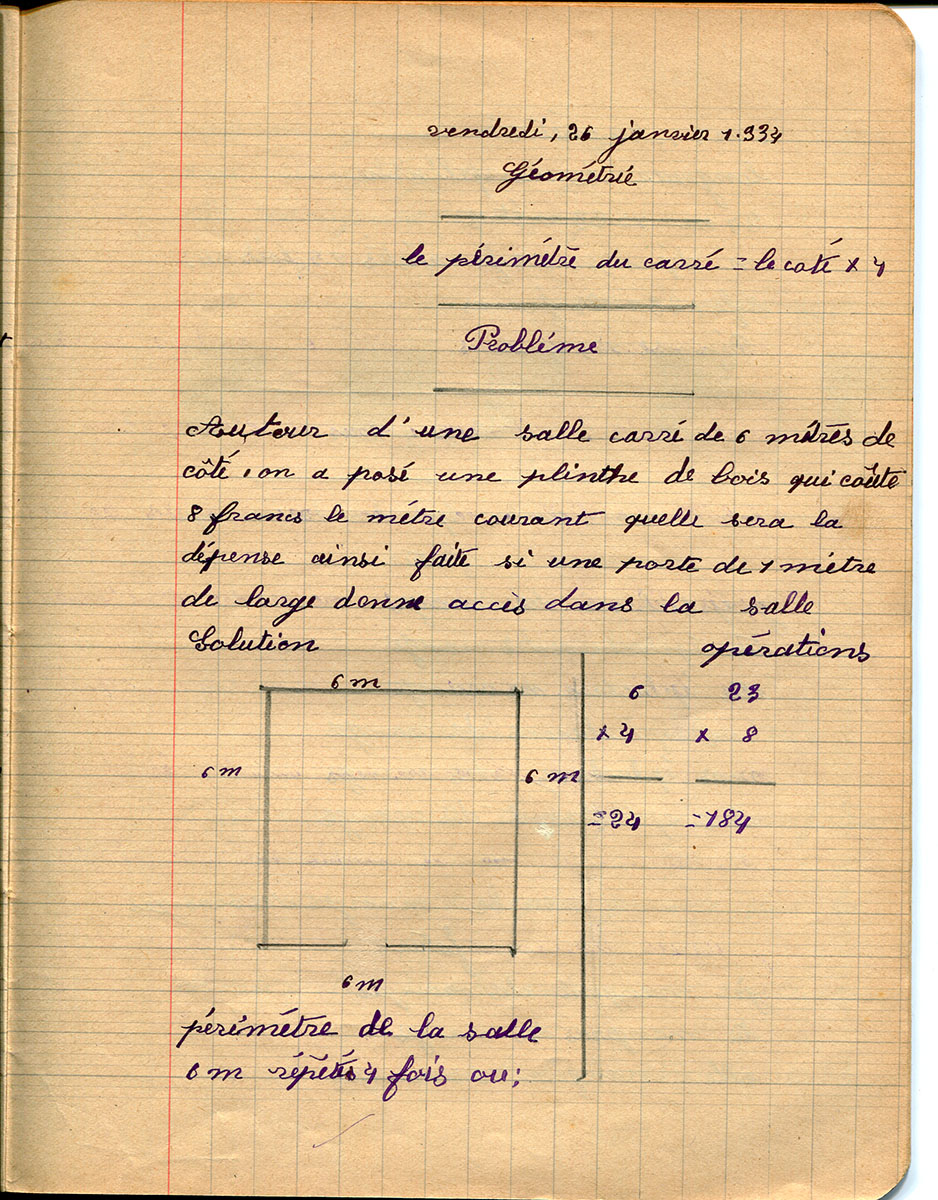 vendredi, 26 janvier 1.934
Géométrie
le périmétre du carré = le coté × 4
Probléme
Autour d'une salle carré de 6 métrès de
côté, on a posé une plinthe de bois qui coûte
8 francs le métre courant quelle sera la
dépense ainsi faite si une porte de 1 métre
de large donne accès dans la salle
Solution
opérations
6 m
6 23
× 4 × 8
6 m
6 m
=24 =184
6 m
périmétre de la salle
6 m répétés 4 fois ou;